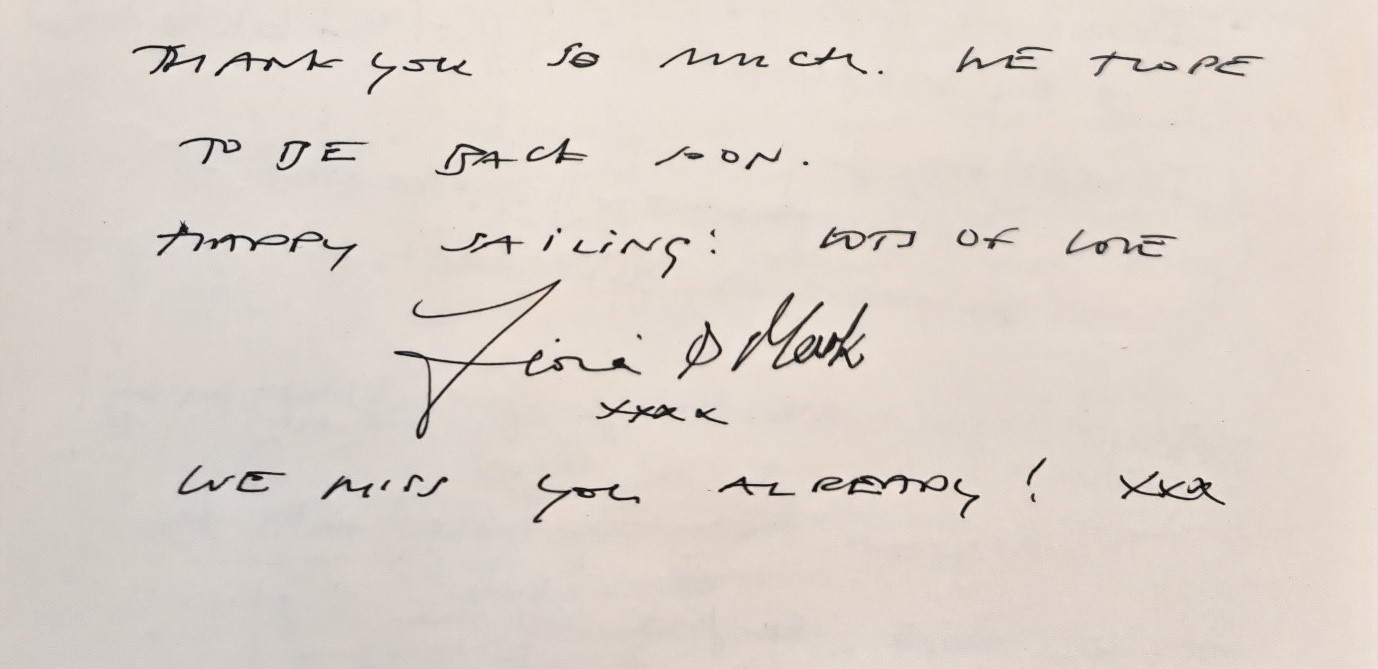 THANK YOU SO MUCH. WE HOPE
TO BE BACK SOON.
HAPPY SAILING! LOTS OF LOVE
& Mark
xxxx
WE MISS YOU ALREADY! xxx